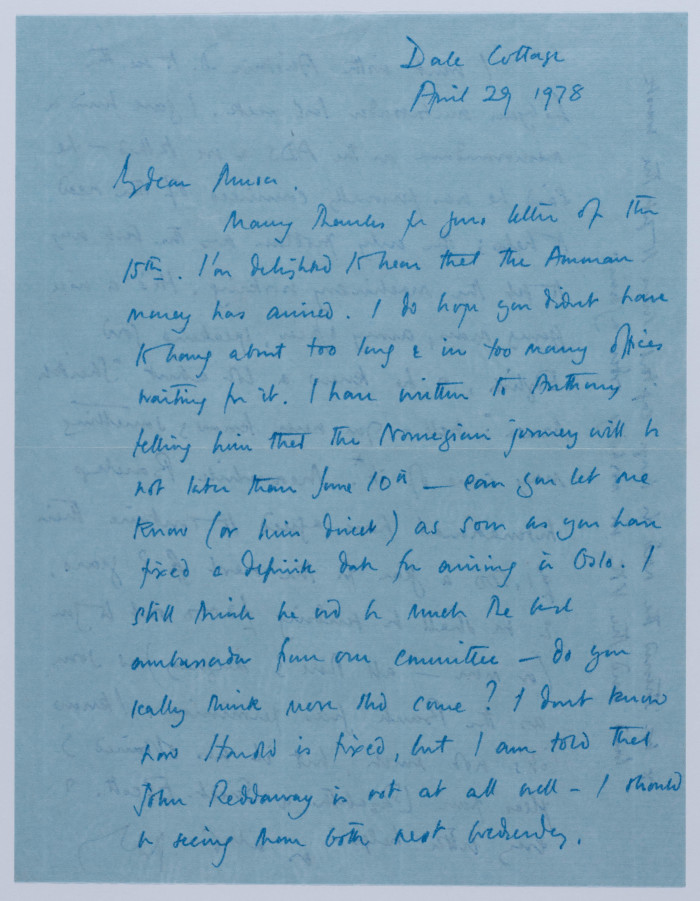 Dale Cottage
April 29 1978
My dear Musa,
Many thanks for your letter of the
15th. I'm delighted to hear that the Amman
money has arrived. I do hope you didnt have
to hang about too long & in too many offices
waiting for it. I have written to Anthony
telling him that the Norwegian journey will be
not later than June 10th — can you let me
know (or him direct) as soon as you have
fixed a definite date for arriving in Oslo. I
still think he wd be much the best
ambassador from our committee — do you
really think more shd come? I dont know
how Harold is fixed, but I am told that
John Reddaway is not at all well — I should
be seeing them both next Wednesday.